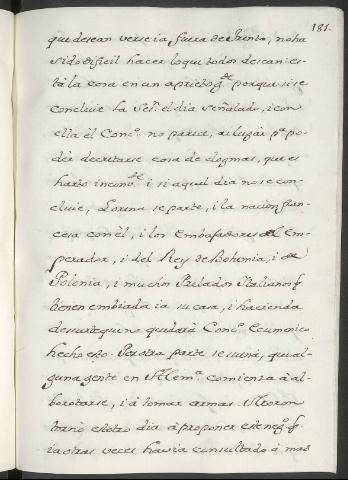 181.
que desean verse ia fuera de Trento, no ha
sido dificil hacer lo que todos desean: es-
tà la cosa en un aprieto gde. porque si se
concluie la Sesn. el dia señalado, i con
ella èl Conco. no parece, ai lugàr pa. po-
dèr decretarse cosa de dogmas, que es
harto inconvte. i si aquel dia no se con-
cluie, Lorena se parte, i la nacion fran-
cesa con èl, i los Embaxadores del Em-
perador, i del Rey de Bohemia, i de
Polonia, i muchos Prelados Italianos q.
tienen embiada ia su casa, i hacienda
de suerte que no quedarà Conco. Ecumenico
hecho esto. Por otra parte se suena, que al-
guna gente en Alema. comienza à al-
borotarse, i à tomar armas.
tarnò esotro dia à proponer este nego. q.
ia otras veces havia consultado à mas